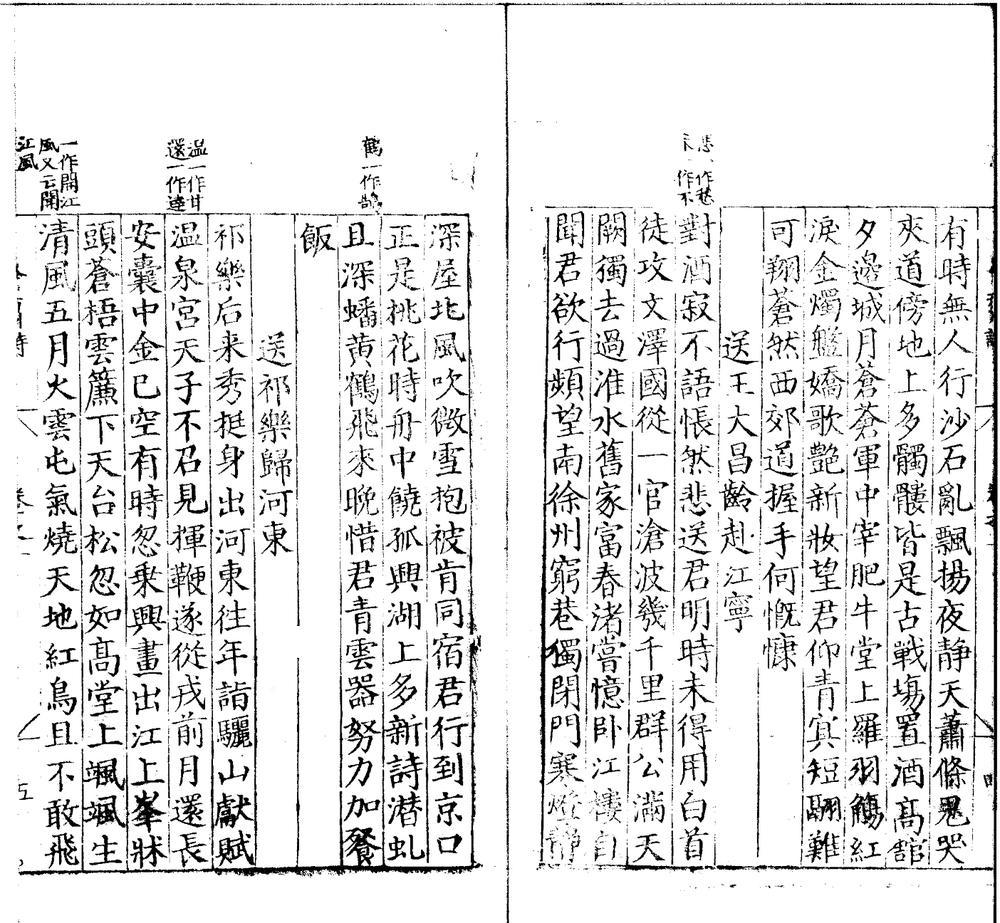 有時無人行沙石亂飄揚夜靜天蕭條鬼哭
夾道傍地上多髑髏皆是古戰塲置酒高舘
夕邊城月蒼蒼軍中宰肥牛堂上羅羽觴紅
淚金燭盤嬌歌艷新妝望君仰青冥短翮難
可翔蒼然西郊道握手何慨慷
送王大昌齡赴江寧
悲一作愁
未一作不
對酒寂不語悵然悲送君明時未得用白首
徒攻文澤國從一官滄波幾千里群公滿天
闕獨去過淮水舊家富春渚嘗憶卧江樓自
聞君欲行頻望南徐州窮巷獨閉門寒燈靜
深屋北風吹微雪抱被肯同宿君行到京口
正是桃花時舟中饒孤興湖上多新詩潜虬
鶴一作鵠
且深蟠黄鶴飛來晚惜君青雲器努力加餐
飯
送祁樂歸河東
祁樂后来秀挺身出河東往年詣驪山獻賦
温一作甘
還一作達
温泉宮天子不召見揮鞭遂從戎前月還長
安囊中金已空有時忽乗興畫出江上峯牀
頭蒼梧雲簾下天台松忽如髙堂上颯颯生
一作開江
風又云開
江風
清風五月火雲屯氣燒天地紅鳥且不敢飛
五